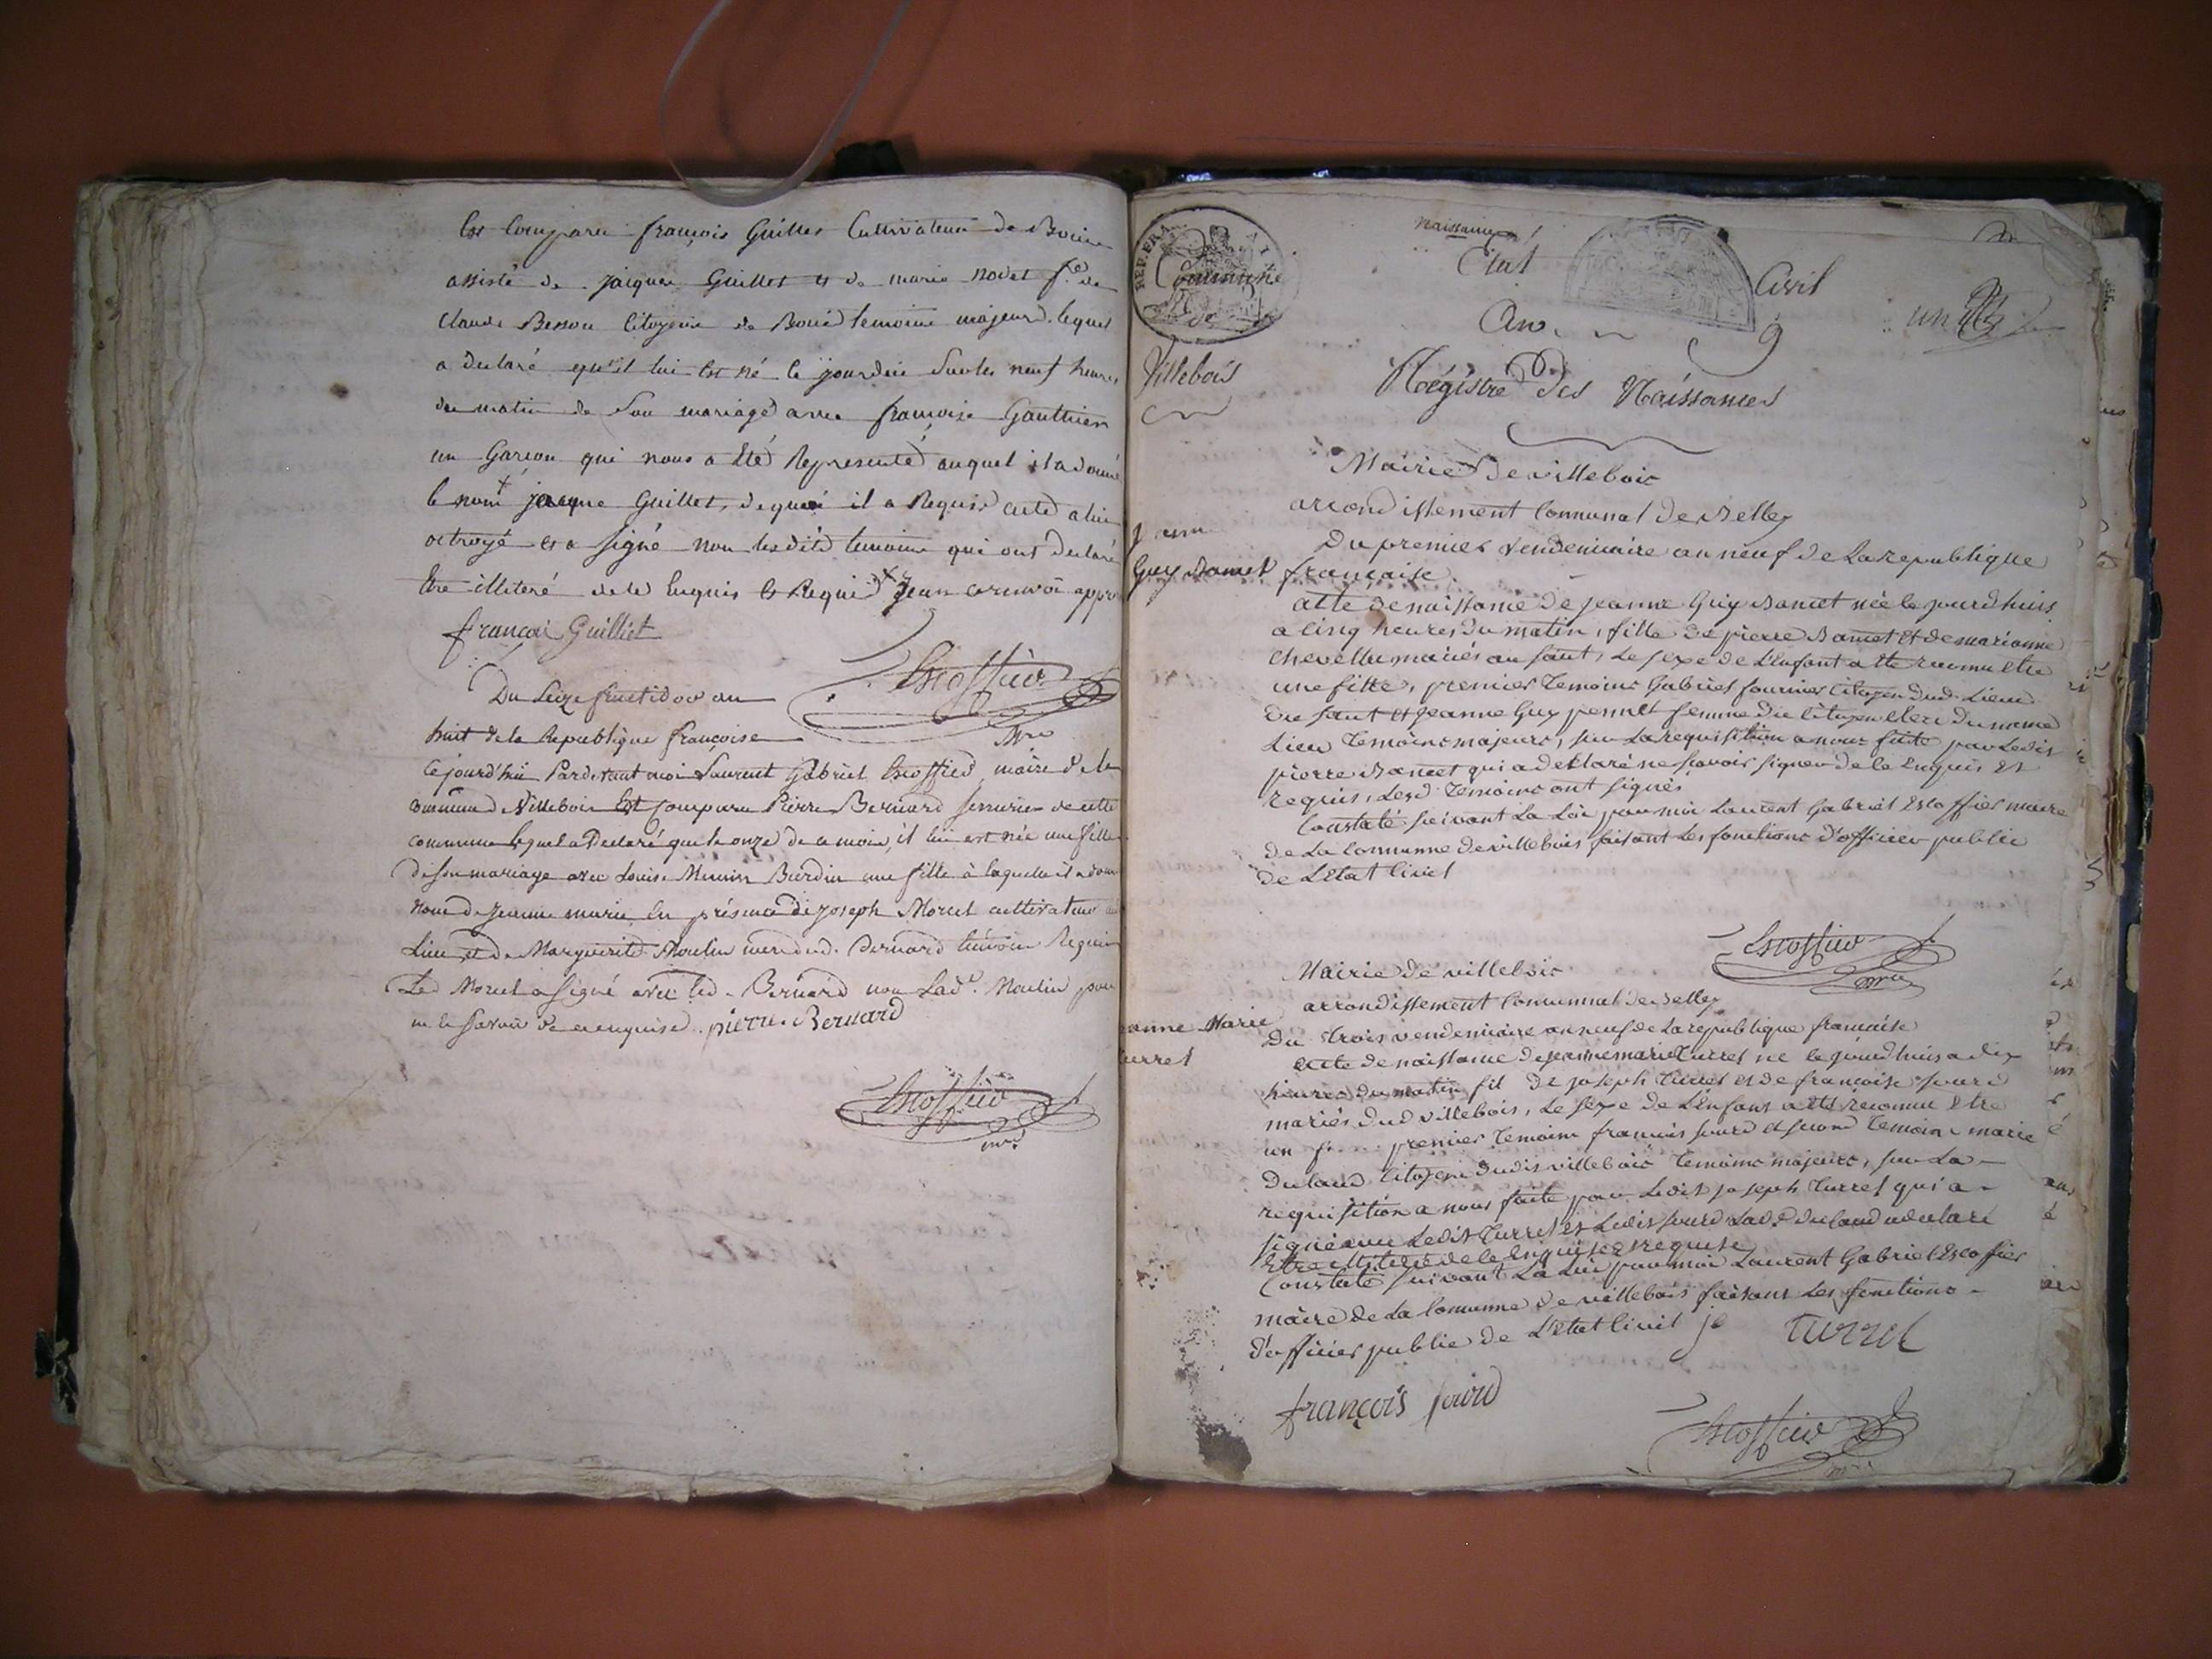 Est Comparu françois Guillet Cultivateur de Bouis
assisté de jacques Guillet et de marie nodet fe de
Claude Besson Citoyens de Bouis temoins majeurs lequel
a declaré qu'il lui Est né ce jourdui sur les neuf heures
du matin de Son mariage avec françoise Gauthier
un Garcon qui nous a Eté Representé auquel il a donné
le nom jacque Guillet, de quoi il a Requis acte a lui
octroyé et a signé non lesdits temoins qui ont declaré
Etre illiteré de ce Enquis et Requis
françoi Guilliet
Escoffier
Mre
Du Seize fructidor an
huit de la Republique françoise
Cejourd'hui Pardevant moi Laurent Gabriel Escoffier maire de la
commune de Villebois Est Comparu Pierre Bernard serrurier de cette
commune lequel a Declaré que le onze de ce mois, il lui est née une fille
de son mariage avec Louise Meunier Burdin une fille à laquelle il a donné
nom de jeanne marie en présence de joseph Morel cultivateur
Lieu et de Marguerite Moulin Bernard témoins Requis
Led Morel a signé avec led. Bernard non Lade. Moulin pour
ne le savoir de ce enquise. pierre Bernard
Escoffier
mre
naissances
REP. FRA
Commune
de
Villebois
Etat Civil
An 9
un
Régistre des Naissances
Mairie de villebois
arrondissement Communal de Belley
Du premier vendemiaire an neuf de La republique
française
Guy Bamet
acte de naissance de jeanne Guy Bamet née le jourdhuis
a cinq heures du matin, fille de pierre Bamet et de marianne
mariés au saut, Le sexe de L'enfant a eté reconnu etre
une fille, premier Temoins Gabriel fournier Citoyen dud. Lieux
du saut et jeanne Guy femme du Citoyen du meme
Lieu Temoins majeurs, sur La requisition a nous faite par Ledit
pierre Bamet qui a declaré ne savoir signer de ce Enquis et
requis, Lesd Temoins ont signés
Constaté suivant La Loi par moi Laurent Gabriel Escoffier maire
de La Commune de villebois faisant Les fonctions d'officier public
de L'Etat Civil
Escoffier
mre
Mairie de villebois
arrondissement Communal de Belley
anne Marie
urrel
Du trois vendemiaire an neuf de La republique française
acte de naissance de jeanne marie Turrel né le jourdhuis a dix
heures du matin fil de joseph Turrel et de françoise sourd
mariés dud villebois, Le sexe de L'enfant a eté reconnu Etre
un premier Temoins françois sourd et second Temoin marie
Dulaud Citoyens dudit villebois Temoins majeurs, sur La
requisition a nous faite par Ledit joseph Turrel qui a
signé avec Ledit Turrel et Ledit sourd Lade Dulaud a declaré
Etre illiteré de ce Enquise et requise
Constaté suivant La Loi par moi Laurent Gabriel Escoffier
maire de La Commune de villebois faisant Les fonctions
d'officier public de L'etat Civil
je turrel
françois sourd
Escoffier